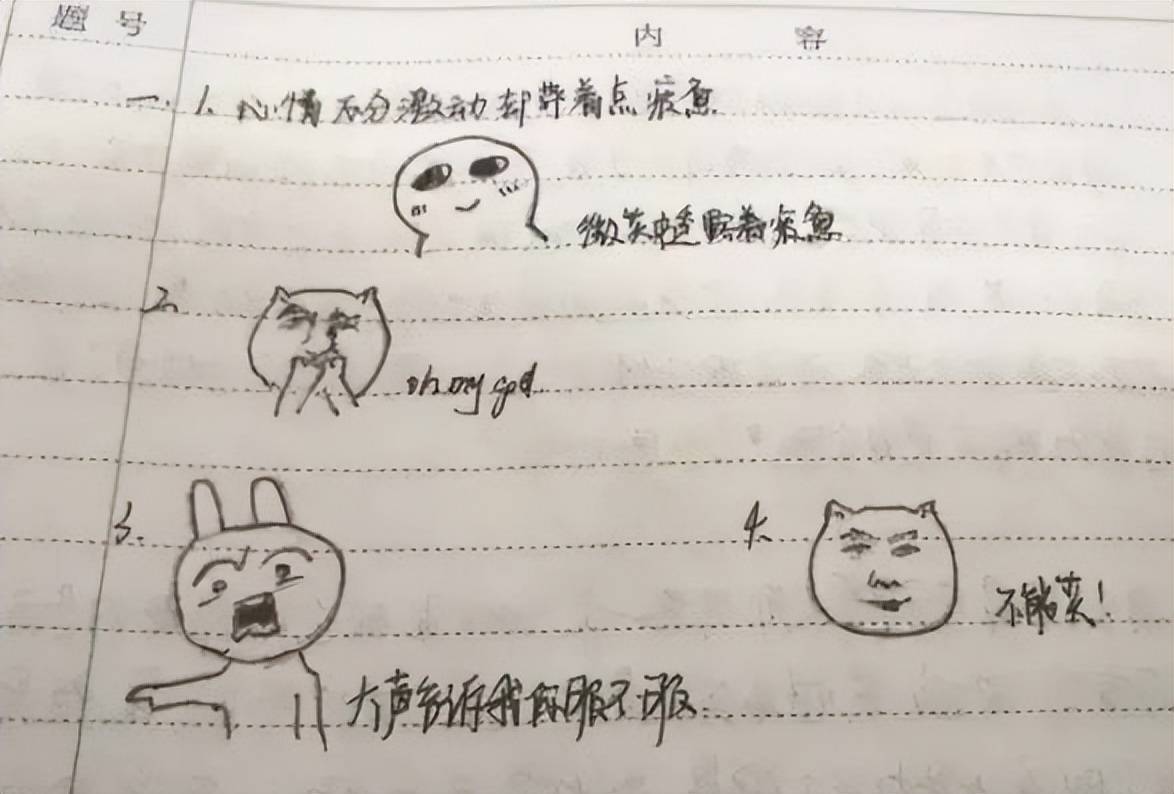 题号 内容
一. 1. 心情万分激动却带着点疲惫
微笑中透露着疲惫
2.
oh my god
3.
4.
不能笑!
大声告诉我你服不服